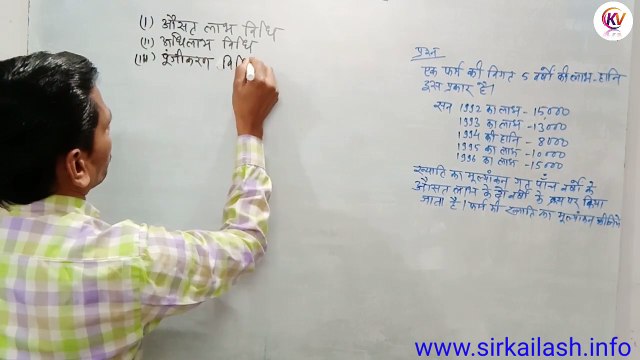 (I) औसत लाभ विधि
(II) अधिलाभ विधि
(III) पूंजीकरण विधि
प्रश्न
एक फर्म की विगत 5 वर्षों की लाभ-हानि
इस प्रकार है।
सन 1992 का लाभ - 15000
1993 का लाभ - 13000
1994 की हानि - 8000
1995 का लाभ - 10000
1996 का लाभ - 15000
ख्याति का मूल्यांकन गत पाँच वर्षों के
औसत लाभ के दो वर्षों के क्रय पर किया
जाता है। फर्म की ख्याति का मूल्यांकन कीजिये
KV
www.sirkailash.info